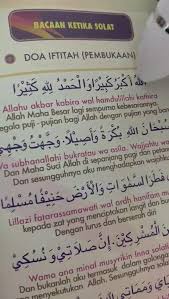 BACAAN KETIKA SOLAT
DOA IFTITAH (PEMBUKAAN)
اللهُ أَكْبَرُ كَبِيْرًا وَالْحَمْدُ لِلّٰهِ كَثِيْرًا
Allahu akbar kabira wal hamdu lillahi kathira
Allah Maha Besar lagi sempurna kebesarannya,
segala puji - pujian bagi Allah dengan pujian yang
سُبْحَانَ اللهِ بُكْرَةً وَأَصِيْلًا، وَجَّهْتُ وَجْهِيَ
Wa subhanallahi bukratau wa asila. Wajjahtu
Dan Maha Suci Allah di sepanjang pagi dan petang
Dan sesungguhnya aku menghadapkan wajahku
فَطَرَ السَّمٰوَاتِ وَالْأَرْضَ حَنِيْفًا مُسْلِمًا
Lillazi fatarassamawati wal ardh hanifam
kepada zat yang menciptakan langit dan bumi
dengan lurus dan berserah diri
الْمُشْرِكِيْنَ، إِنَّ صَلَاتِيْ وَنُسُكِيْ
Wama ana minal musyrikin Inna solati
Dan bukanlah aku termasuk dalam golongan
menyekutukan Allah. Sesungguhnya